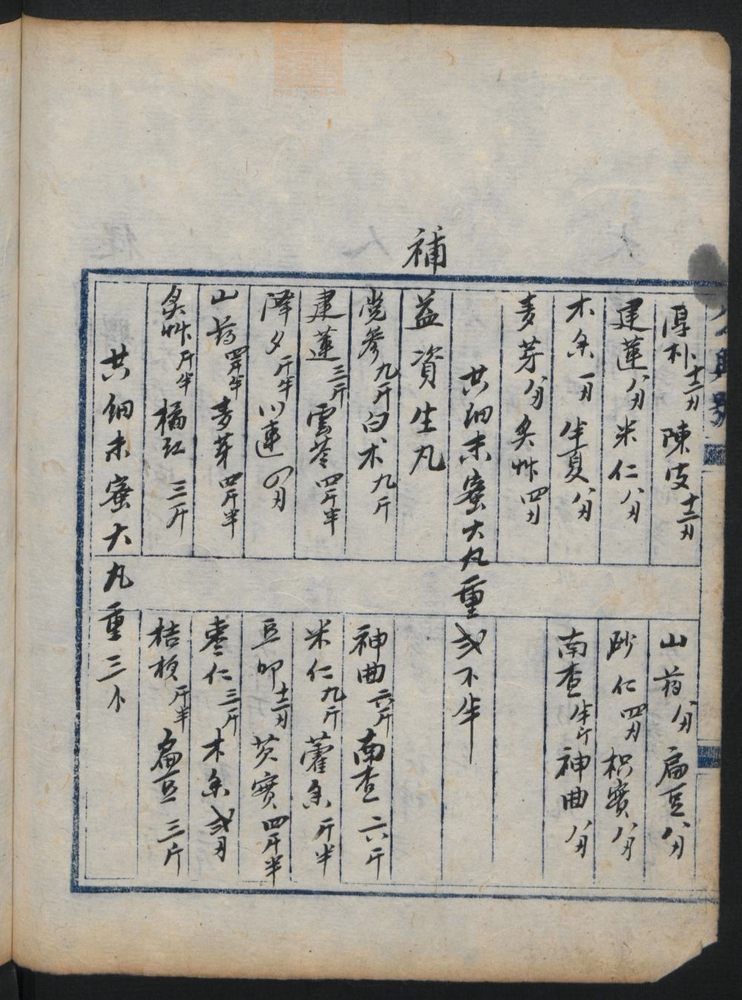 補
厚朴十二刃 陳皮十二刃
山药八刃 扁豆八刃
建蓮八刃 米仁八刃
砂仁四刃 枳實八刃
木香一刃 半夏八刃
南查半斤 神曲八刃
麦芽八刃 炙草四刃
共細末蜜大丸重弍个半
益資生丸
党參九斤 白术九斤
神曲六斤 南查六斤
建蓮三斤 雲苓四斤半
米仁九斤 藿香斤半
澤夕斤半 川連四刃
豆卬十二刃 芡實四斤半
山药四斤半 麦芽四斤半
枣仁三斤 木香弍刃
炙草斤半 橘紅三斤
桔梗斤半 扁豆三斤
共細末蜜大丸重三个